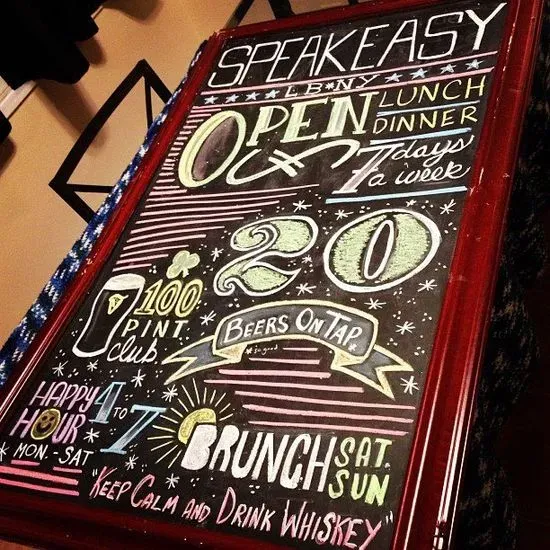 SPEAKEASY
LB★NY
OPEN
LUNCH
DINNER
7 days
a week
20
BEERS ON TAP
100
PINT
club
HAPPY
HOUR
4 TO 7
MON-SAT
BRUNCH
SAT
SUN
"KEEP CALM AND DRINK WHISKEY"